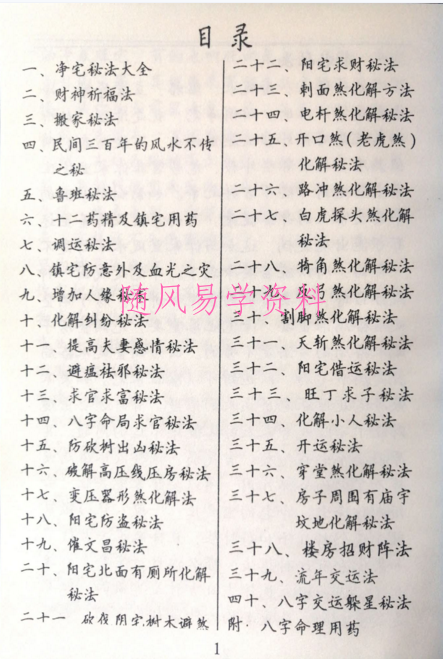 目录
一、净宅秘法大全
二、财神祈福法
三、搬家秘法
四、民间三百年的风水不传
之秘
五、鲁班秘法
六、十二药精及镇宅用药
七、调运秘法
八、镇宅防意外及血光之灾
九、增加人缘秘术
十、化解纠纷秘法
十一、提高夫妻感情秘法
十二、避瘟祛邪秘法
十三、求官求富秘法
十四、八字命局求官秘法
十五、防砍树出凶秘法
十六、破解高压线压房秘法
十七、变压器形煞化解法
十八、阳宅防盗秘法
十九、催文昌秘法
二十、阳宅北面有厕所化解
秘法
二十一 砍伐阴宅树木避煞
二十二、阳宅求财秘法
二十三、刺面煞化解方法
二十四、电杆煞化解秘法
二十五、开口煞(老虎煞)
化解秘法
二十六、路冲煞化解秘法
二十七、白虎探头煞化解
秘法
二十八、犄角煞化解秘法
二十九、反弓煞化解秘法
三十、割脚煞化解秘法
三十一、天斩煞化解秘法
三十二、阳宅借运秘法
三十三、旺丁求子秘法
三十四、化解小人秘法
三十五、开运秘法
三十六、穿堂煞化解秘法
三十七、房子周围有庙宇
坟地化解秘法
三十八、楼房招财阵法
三十九、流年交运法
四十、八字交运躲星秘法
附·八字命理用药
随风易学资料
1